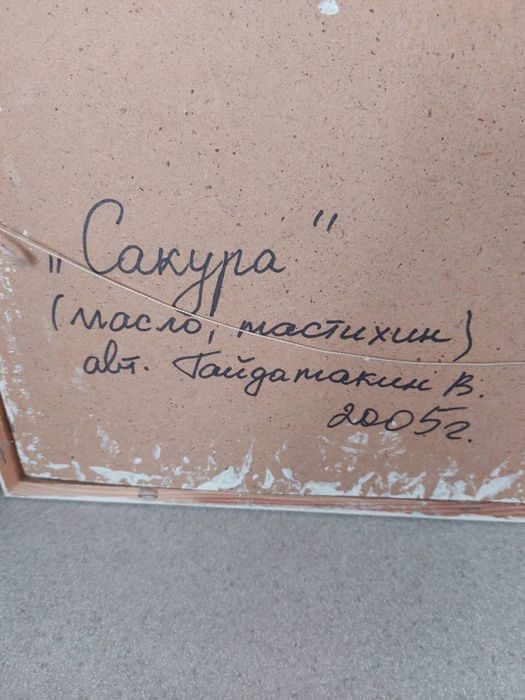 „Сакура"
(масло, мастихин)
авт. Гайдамакин В.
2005г.